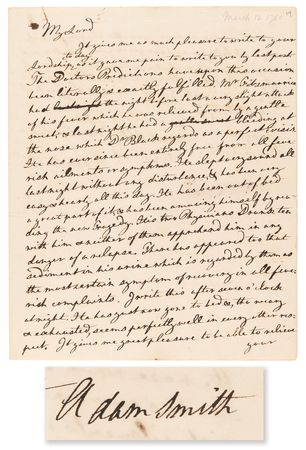 March 12, 1760
My Lord
It gives me as much pleasure to write to your
Lordship to day, as it gave me pain to write to you by last post.
The Doctors Predictions have upon this occasion
been literally & exactly fulfilled. Mr Fitzmaurice
had the night before last a very slight attack
of his fever which he was relieved from by a gentle
sweat; & last night he had a bleeding at
the nose which Dr Black regards as a perfect crisis.
He has ever since been entirely free from all feve
rish ailments or symptoms. He slept very sound all
last night without any disturbance, & has been very
easy & hearty all this day. He has been out of bed
a great part of it, & has been amusing himself by rea-
ding the new tragedy. His two Physicians Drank tea
with him & neither of them apprehend him in any
danger of a relapse. There has appeared too that
sediment in his urine which is regarded by them as
the most certain symptom of recovery in all feve
rish complaints. I write this after seven o'clock
at night. He has just now gone to bed &, tho weary
& exhausted, seems perfectly well in every other res-
pect. It gives me great pleasure to be able to relieve
your
Adam Smith